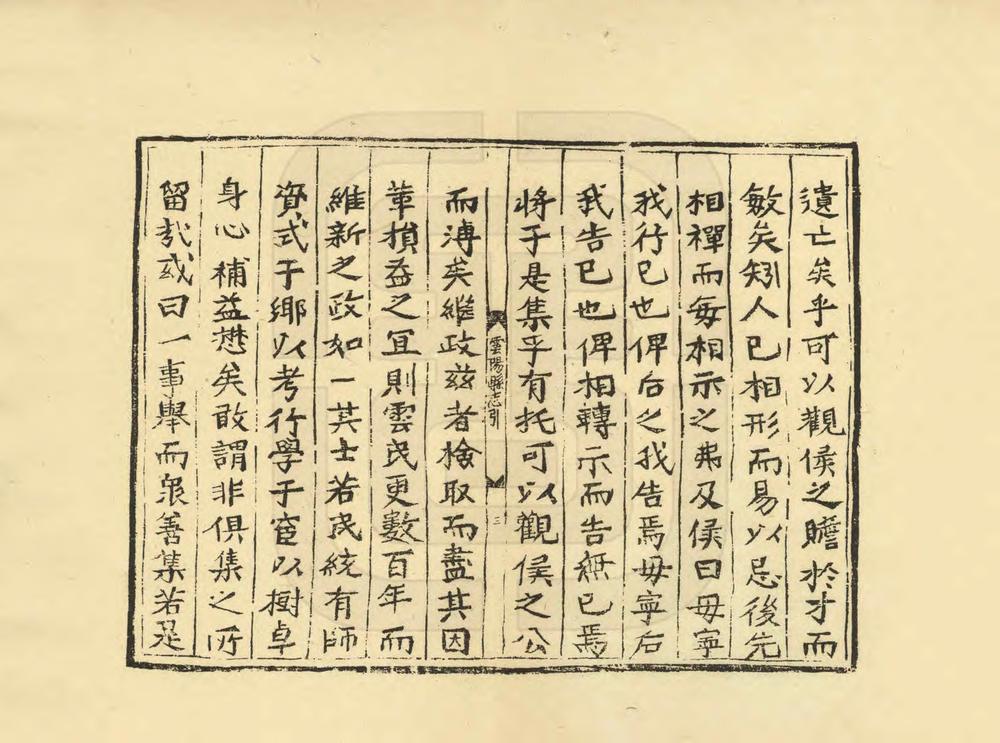 遺亡矣乎可以觀侯之贍於才而
敏矣矧人已相形而易以忌後先
相禪而每相示之弗及侯曰毋寧
我行已也俾后之我告焉毋寧后
我告已也俾相轉示而告無已焉
將于是集乎有托可以觀侯之公
而溥矣繼政茲者檢取而盡其因
革損益之宜則雲民更數百年而
維新之政如一其士若民統有師
資式于鄉以考行學于宦以樹卓
身心補益懋矣敢謂非俱集之所
留哉或曰一事舉而衆善集若是
雲陽縣志引
三